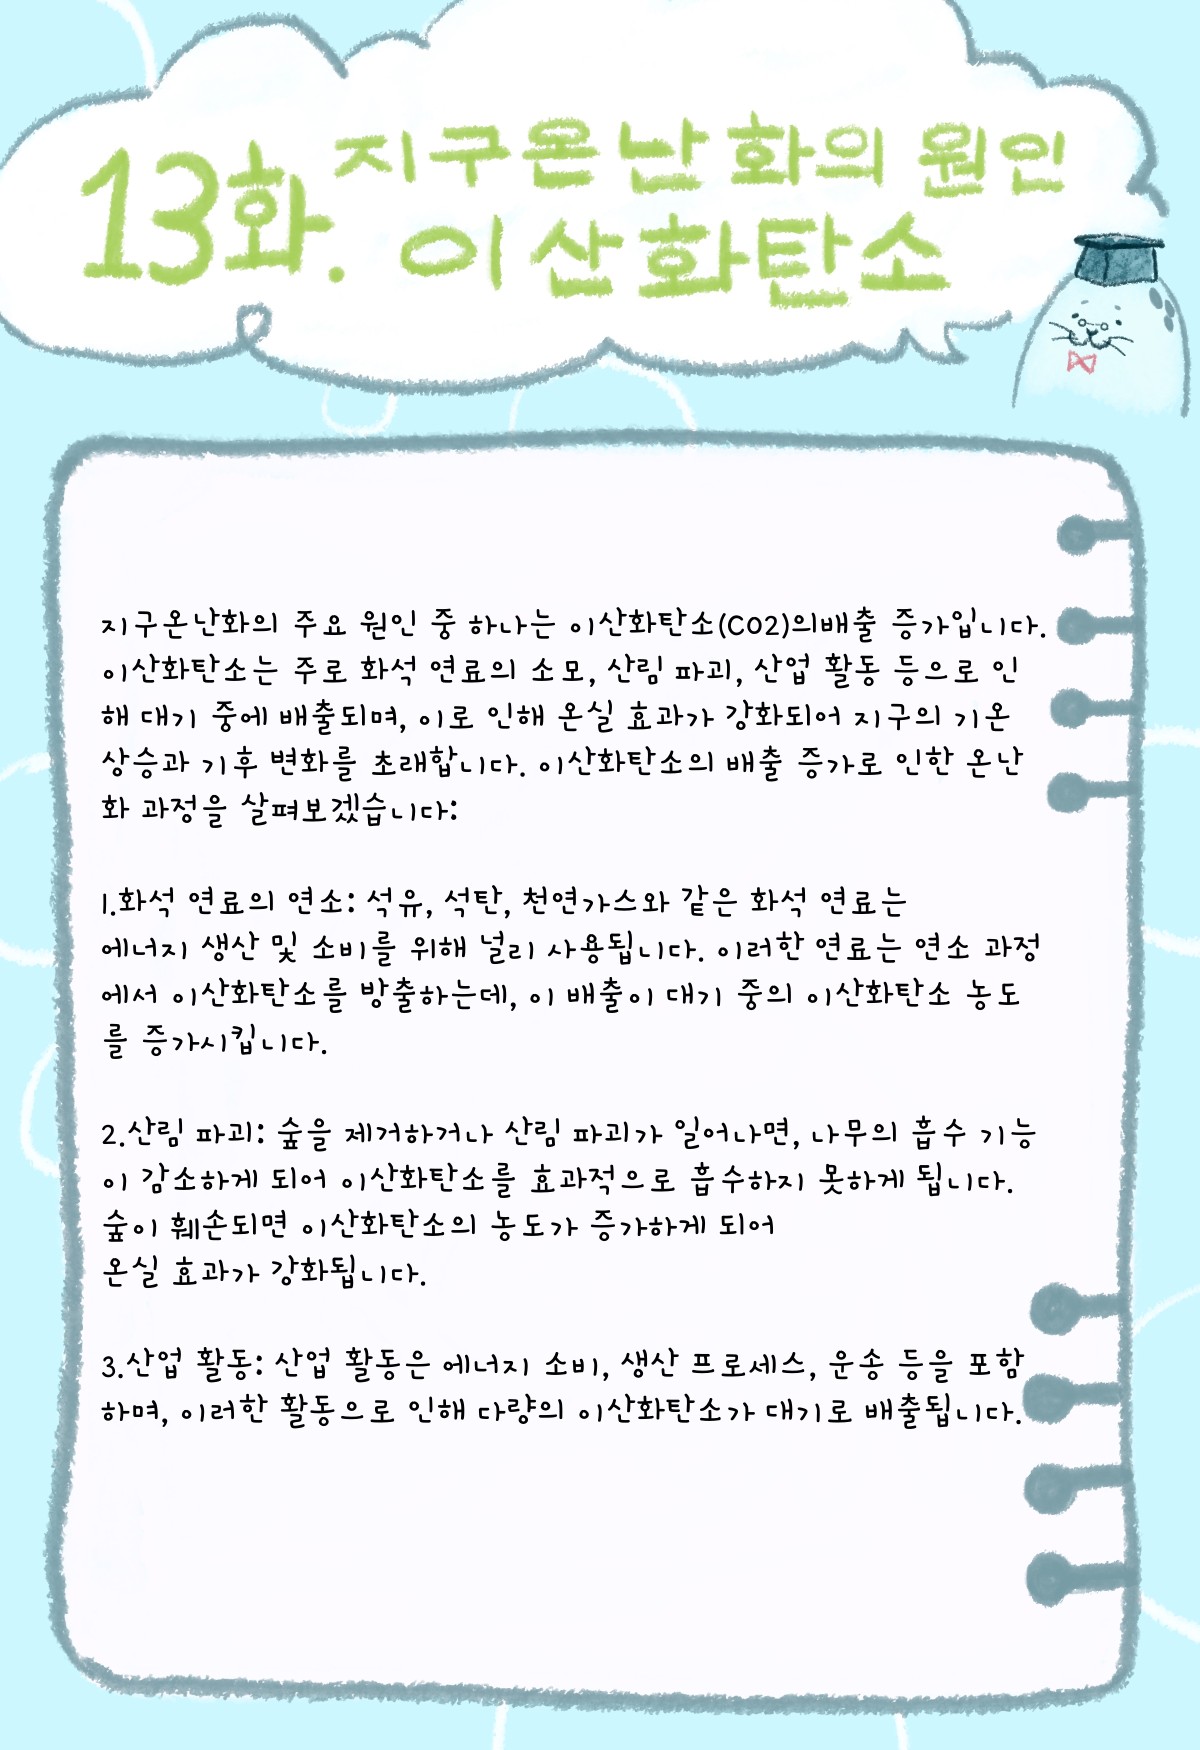 13화. 지구온난화의 원인
이산화탄소
지구온난화의 주요 원인 중 하나는 이산화탄소(CO2)의배출 증가입니다.
이산화탄소는 주로 화석 연료의 소모, 산림 파괴, 산업 활동 등으로 인
해 대기 중에 배출되며, 이로 인해 온실 효과가 강화되어 지구의 기온
상승과 기후 변화를 초래합니다. 이산화탄소의 배출 증가로 인한 온난
화 과정을 살펴보겠습니다:
1.화석 연료의 연소: 석유, 석탄, 천연가스와 같은 화석 연료는
에너지 생산 및 소비를 위해 널리 사용됩니다. 이러한 연료는 연소 과정
에서 이산화탄소를 방출하는데, 이 배출이 대기 중의 이산화탄소 농도
를 증가시킵니다.
2.산림 파괴: 숲을 제거하거나 산림 파괴가 일어나면, 나무의 흡수 기능
이 감소하게 되어 이산화탄소를 효과적으로 흡수하지 못하게 됩니다.
숲이 훼손되면 이산화탄소의 농도가 증가하게 되어
온실 효과가 강화됩니다.
3.산업 활동: 산업 활동은 에너지 소비, 생산 프로세스, 운송 등을 포함
하며, 이러한 활동으로 인해 다량의 이산화탄소가 대기로 배출됩니다.